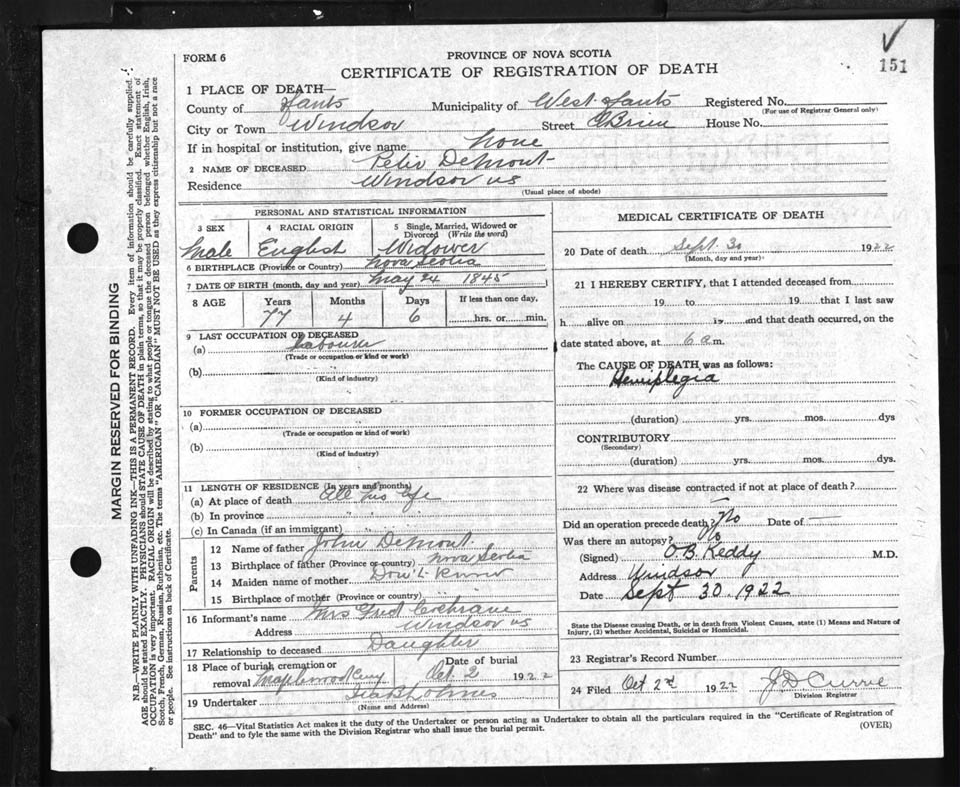 151
FORM 6
PROVINCE OF NOVA SCOTIA
CERTIFICATE OF REGISTRATION OF DEATH
1 PLACE OF DEATH—
County of Hants Municipality of West Hants Registered No.
(For use of Registrar General only)
City or Town Windsor Street O'Brien House No.
If in hospital or institution, give name None
2 NAME OF DECEASED Felix Demont
Residence Windsor NS
(Usual place of abode)
PERSONAL AND STATISTICAL INFORMATION
3 SEX 4 RACIAL ORIGIN 5 Single, Married, Widowed or Divorced (Write the word)
Male English Widower
6 BIRTHPLACE (Province or Country) Nova Scotia
7 DATE OF BIRTH (month, day and year) May 24 1845
8 AGE Years Months Days If less than one day,
77 4 6 hrs. or min.
9 LAST OCCUPATION OF DECEASED
(a) Labourer
(Trade or occupation or kind of work)
(b)
(Kind of industry)
10 FORMER OCCUPATION OF DECEASED
(a)
(Trade or occupation or kind of work)
(b)
(Kind of industry)
11 LENGTH OF RESIDENCE (In years and months)
(a) At place of death All his life
(b) In province " "
(c) In Canada (if an immigrant) " "
Parents
12 Name of father John Demont
13 Birthplace of father (Province or country) Nova Scotia
14 Maiden name of mother Don't Know
15 Birthplace of mother (Province or country)
16 Informant's name Mrs Fred Cochrane
Address Windsor NS
17 Relationship to deceased Daughter
18 Place of burial, cremation or removal Maplewood Cemy Date of burial Oct. 2 1922
19 Undertaker
(Name and Address)
MEDICAL CERTIFICATE OF DEATH
20 Date of death Sept. 30 1922
(Month, day and year)
21 I HEREBY CERTIFY, that I attended deceased from
19 to 19 that I last saw
h alive on 19 and that death occurred, on the
date stated above, at 6 a.m.
The CAUSE OF DEATH was as follows:
Hemiplegia
(duration) yrs. mos. dys
CONTRIBUTORY
(Secondary)
(duration) yrs. mos. dys.
22 Where was disease contracted if not at place of death?
—
Did an operation precede death? No Date of —
Was there an autopsy? No
(Signed) O.B. Keddy M.D.
Address Windsor
Date Sept 30 1922
State the Disease causing Death, or in death from Violent Causes, state (1) Means and Nature of
Injury, (2) whether Accidental, Suicidal or Homicidal.
23 Registrar's Record Number
24 Filed Oct 2nd 1922 J D Currie
Division Registrar
SEC. 46—Vital Statistics Act makes it the duty of the Undertaker or person acting as Undertaker to obtain all the particulars required in the "Certificate of Registration of
Death" and to fyle the same with the Division Registrar who shall issue the burial permit.
(OVER)
MARGIN RESERVED FOR BINDING
N.B.—WRITE PLAINLY WITH UNFADING INK—THIS IS A PERMANENT RECORD. Every item of information should be carefully supplied.
AGE should be stated EXACTLY. PHYSICIANS should STATE CAUSE OF DEATH in plain terms, so that it may be properly classified. Exact statement of
OCCUPATION is very important. RACIAL ORIGIN will be described by stating to what people or tongue the deceased person belonged whether English, Irish,
Scotch, French, German, Russian, Ruthenian, etc. The terms "AMERICAN" OR "CANADIAN" MUST NOT BE USED as they express citizenship but not a race
or people. See instructions on back of Certificate.